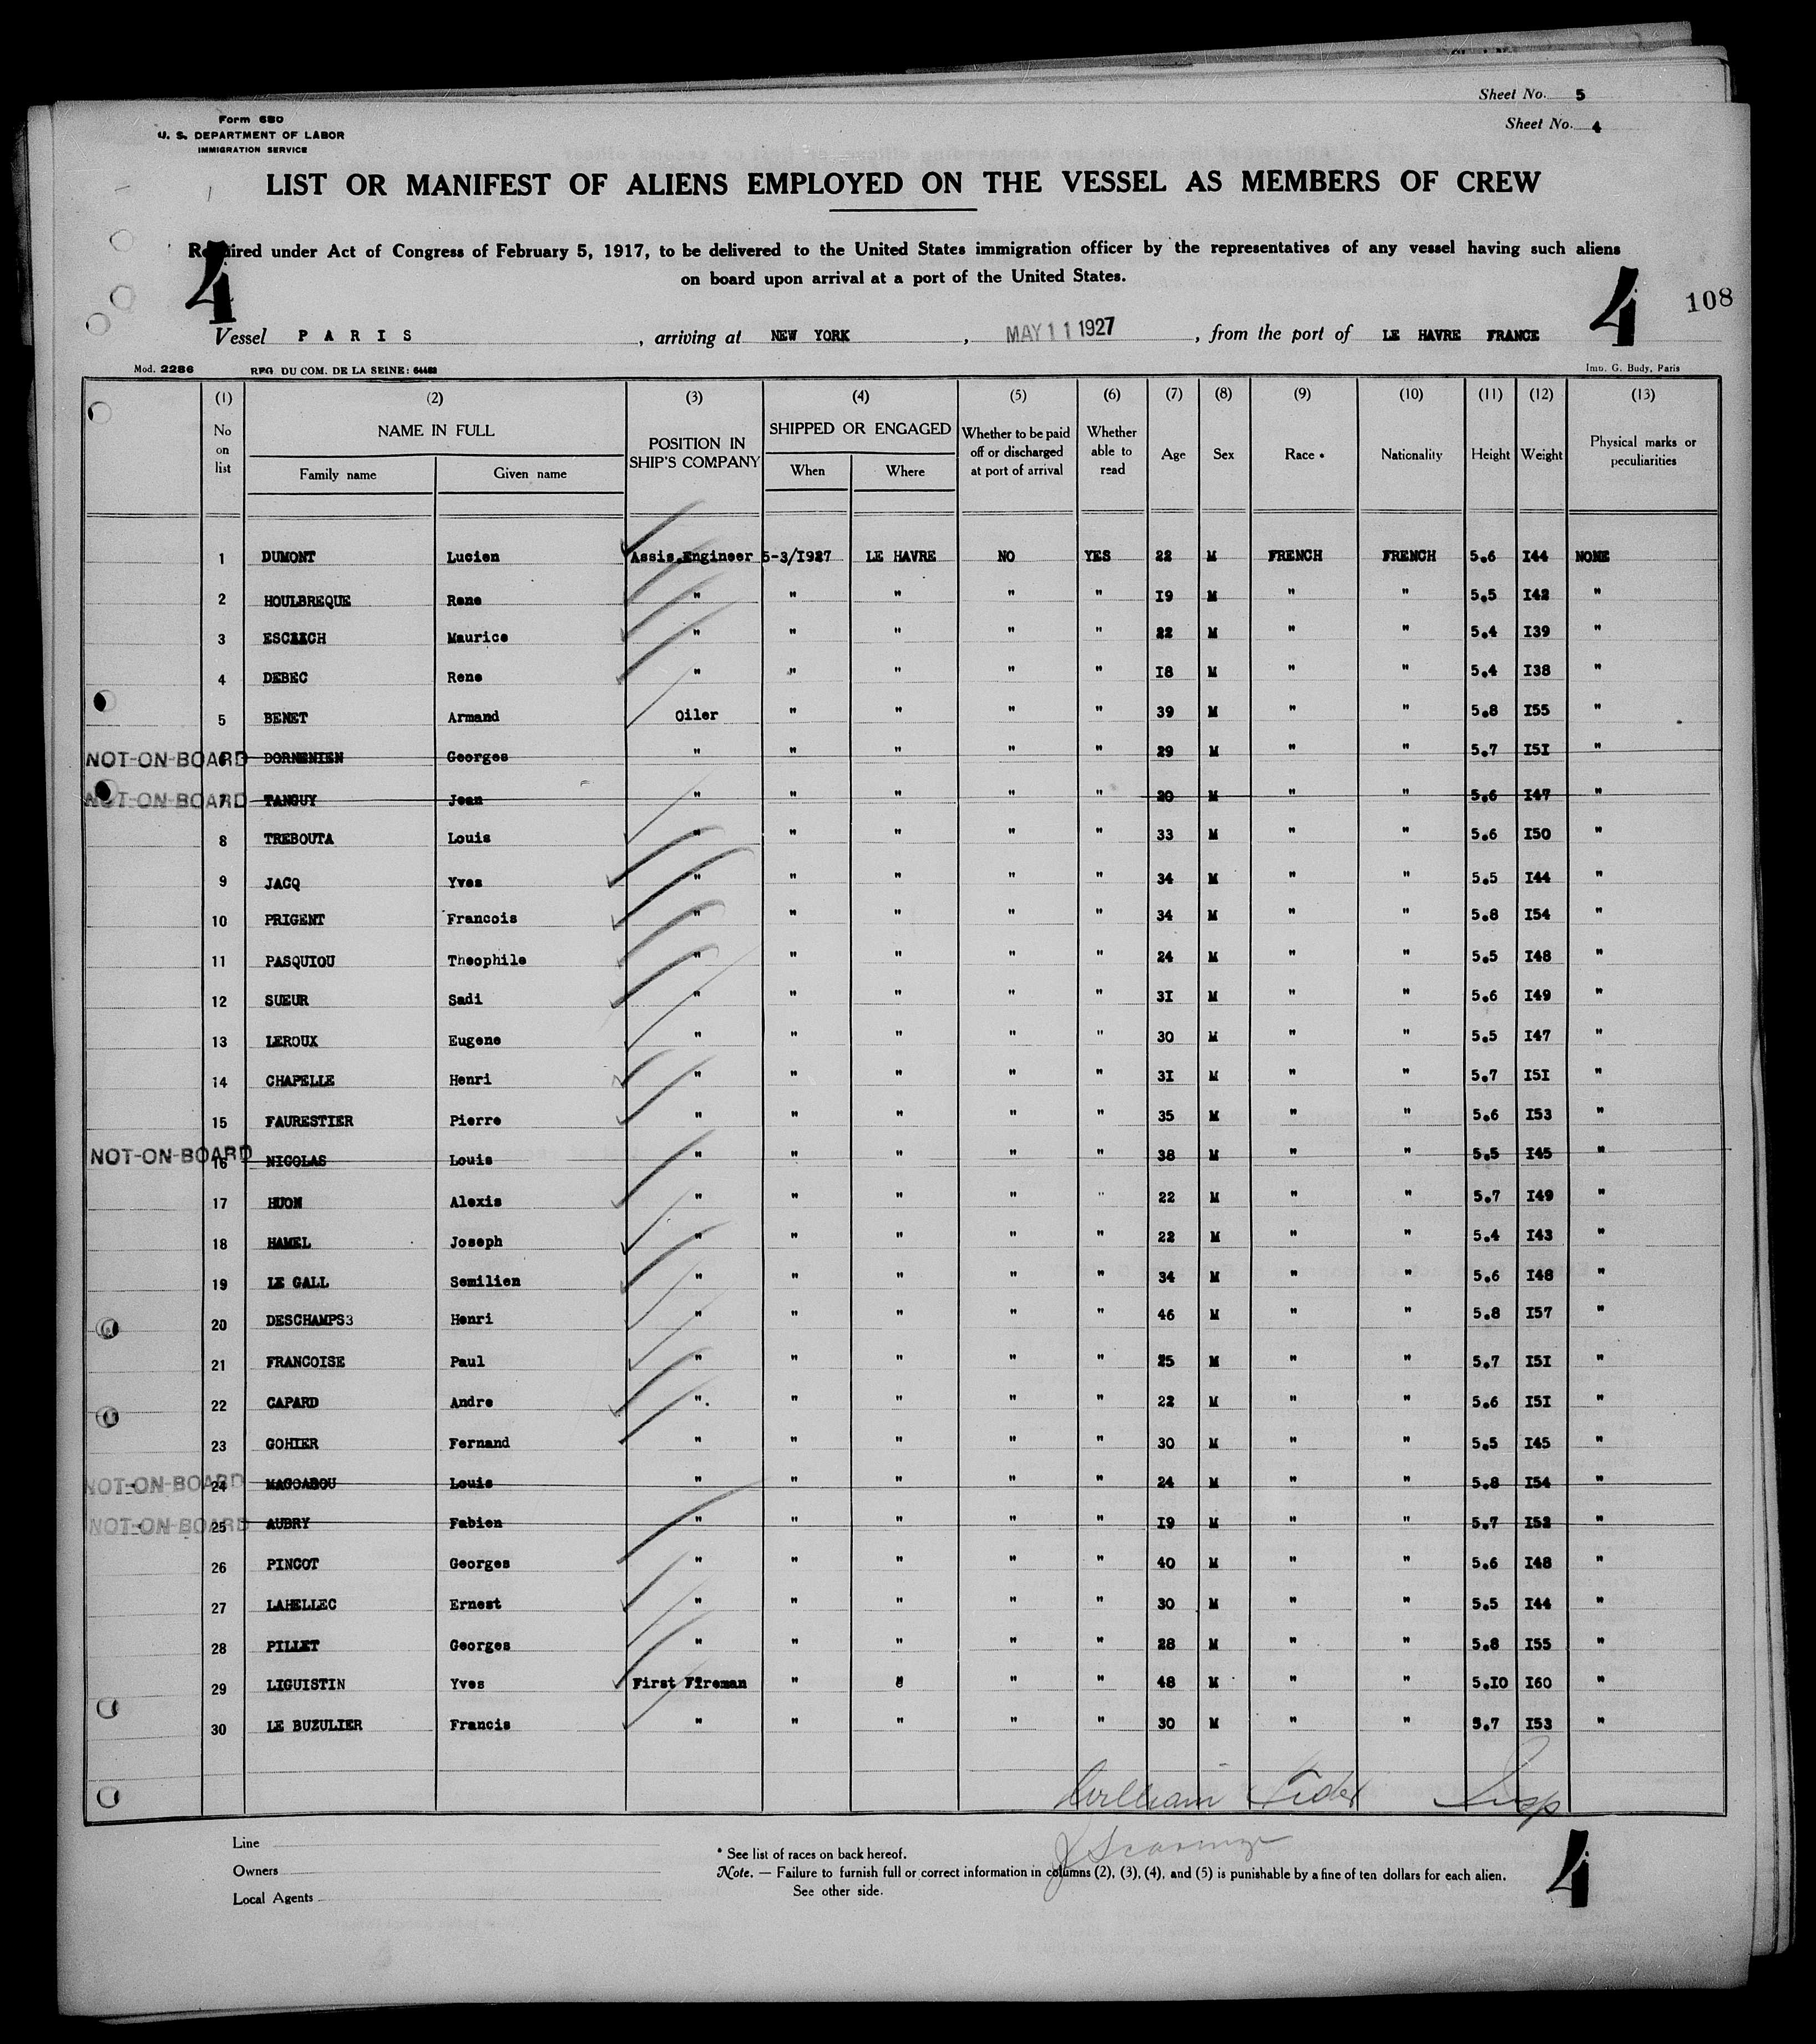 Sheet No. 5
Sheet No. 4
Form 680
U. S. DEPARTMENT OF LABOR
IMMIGRATION SERVICE
LIST OR MANIFEST OF ALIENS EMPLOYED ON THE VESSEL AS MEMBERS OF CREW
Required under Act of Congress of February 5, 1917, to be delivered to the United States immigration officer by the representatives of any vessel having such aliens
on board upon arrival at a port of the United States.
4 4 108
Vessel PARIS, arriving at NEW YORK, MAY 11 1927, from the port of LE HAVRE FRANCE
Mod. 2286 REG. DU COM. DE LA SEINE: Imp. G. Budy, Paris
(1) (2) (3) (4) (5) (6) (7) (8) (9) (10) (11) (12) (13)
No on list NAME IN FULL Family name Given name POSITION IN SHIP'S COMPANY SHIPPED OR ENGAGED When Where Whether to be paid off or discharged at port of arrival Whether able to read Age Sex Race * Nationality Height Weight Physical marks or peculiarities
1 DUMONT Lucien Assis.Engineer 5-3/1927 LE HAVRE NO YES 22 M FRENCH FRENCH 5.6 I44 NONE
2 HOULBREQUE Rene " " " " " I9 M " " 5.5 I42 "
3 Maurice " " " " " 22 M " " 5.4 I39 "
4 DEBEC Rene " " " " " I8 M " " 5.4 I38 "
5 BENET Armand Oiler " " " " 39 M " " 5.8 I55 "
NOT-ON-BOARD 6 DORNENIEN Georges " " " " " 29 M " " 5.7 I5I "
NOT-ON-BOARD 7 TANGUY Jean " " " " " 20 M " " 5.6 I47 "
8 TREBOUTA Louis " " " " " 33 M " " 5.6 I50 "
9 JACQ Yves " " " " " 34 M " " 5.5 I44 "
10 PRIGENT Francois " " " " " 34 M " " 5.8 I54 "
11 PASQUIOU Theophile " " " " " 24 M " " 5.5 I48 "
12 SUEUR Sadi " " " " " 3I M " " 5.6 I49 "
13 LEROUX Eugene " " " " " 30 M " " 5.5 I47 "
14 CHAPELLE Henri " " " " " 3I M " " 5.7 I5I "
15 FAURESTIER Pierre " " " " " 35 M " " 5.6 I53 "
NOT-ON-BOARD 16 NICOLAS Louis " " " " " 38 M " " 5.5 I45 "
17 HUON Alexis " " " " " 22 M " " 5.7 I49 "
18 HAMEL Joseph " " " " " 22 M " " 5.4 I43 "
19 LE GALL Semilien " " " " " 34 M " " 5.6 I48 "
20 DESCHAMPS3 Henri " " " " " 46 M " " 5.8 I57 "
21 FRANCOISE Paul " " " " " 25 M " " 5.7 I5I "
22 CAPARD Andre ". " " " " 22 M " " 5.6 I5I "
23 GOHIER Fernand " " " " " 30 M " " 5.5 I45 "
NOT-ON-BOARD 24 MAGOAROU Louis " " " " " 24 M " " 5.8 I54 "
NOT-ON-BOARD 25 AUBRY Fabien " " " " " I9 M " " 5.7 I52 "
26 PINCOT Georges " " " " " 40 M " " 5.6 I48 "
27 LAHELLEC Ernest " " " " " 30 M " " 5.5 I44 "
28 PILLET Georges " " " " " 28 M " " 5.8 I55 "
29 LIGUISTIN Yves First Fireman " " " " 48 M " " 5.I0 I60 "
30 LE BUZULIER Francis " " " " " 30 M " " 5.7 I53 "
William Insp
Line
Owners
Local Agents
* See list of races on back hereof.
Note. — Failure to furnish full or correct information in columns (2), (3), (4), and (5) is punishable by a fine of ten dollars for each alien.
See other side.
4